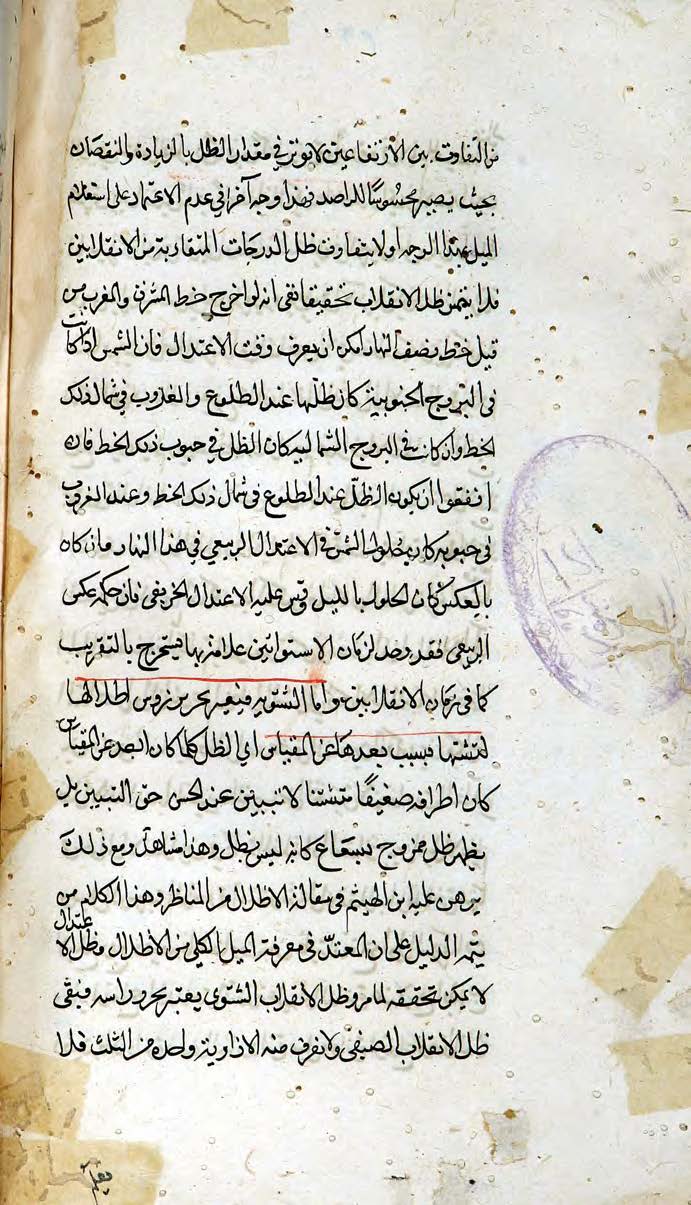 من التفاوت بين الارتفاعين لا يوثر في مقدار الظل بالزيادة والنقصان
بحيث يصير محسوسًا للراصد فهذا وجه آخر في عدم الاعتماد على استعلام
الميل بهذا الوجه اولا يتفاوت ظل الدرجات المتقاربة من الانقلابين
فلا يتميز ظل الانقلاب تحقيقا نقى انه لو اخرج خط المشرق والمغرب من
قبل خط نصف النهار امكن ان يعرف وقت الاعتدال فان الشمس اذا كانت
في البروج الجنوبية كان ظلها عند الطلوع والغروب في شمال ذلك
الخط وان كانت في البروج الشمالية كان الظل في جنوب ذلك الخط فان
اتفقوا ان يكون الظل عند الطلوع في شمال ذلك الخط وعند الغروب
في جنوبه كان حلول الشمس في الاعتدال الربيعي في هذا النهار وان كان
بالعكس كان الحلول بالليل وقس عليه الاعتدال الخريفي فان حكمه عكس
الربيعي فقد وجد لزمان الاستوائين علامة بها يستخرج بالتقريب
كما في زمان الانقلابين واما الشتوية فيعسر تحرير رؤس اظلالها
لتشتتها بسبب بعدها عن المقياس اي الظل كلما كان ابعد عن المقياس
كان اطرافه ضعيفًا متشتتا لا تتبين عند الحس حق التبيين بل
يظهر ظل ممزوج بشعاع كانه ليس بظل وهذا مشاهد ومع ذلك
برهن عليه ابن الهيثم في مقالة الاظلال من المناظر وهذا الكلام من
يتمه الدليل على ان المعتد في معرفة الميل الكلي من الاظلال وظل الاعتدال
لا يمكن تحققه لما مر وظل الانقلاب الشتوي يعتبر تحرير راسه فبقى
ظل الانقلاب الصيفي ولا نعرف منه الا زاوية واحدة من المثلث فلا
يعلم